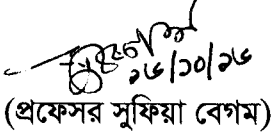 ১৬/১০/১৬
(প্রফেসর সুফিয়া বেগম)